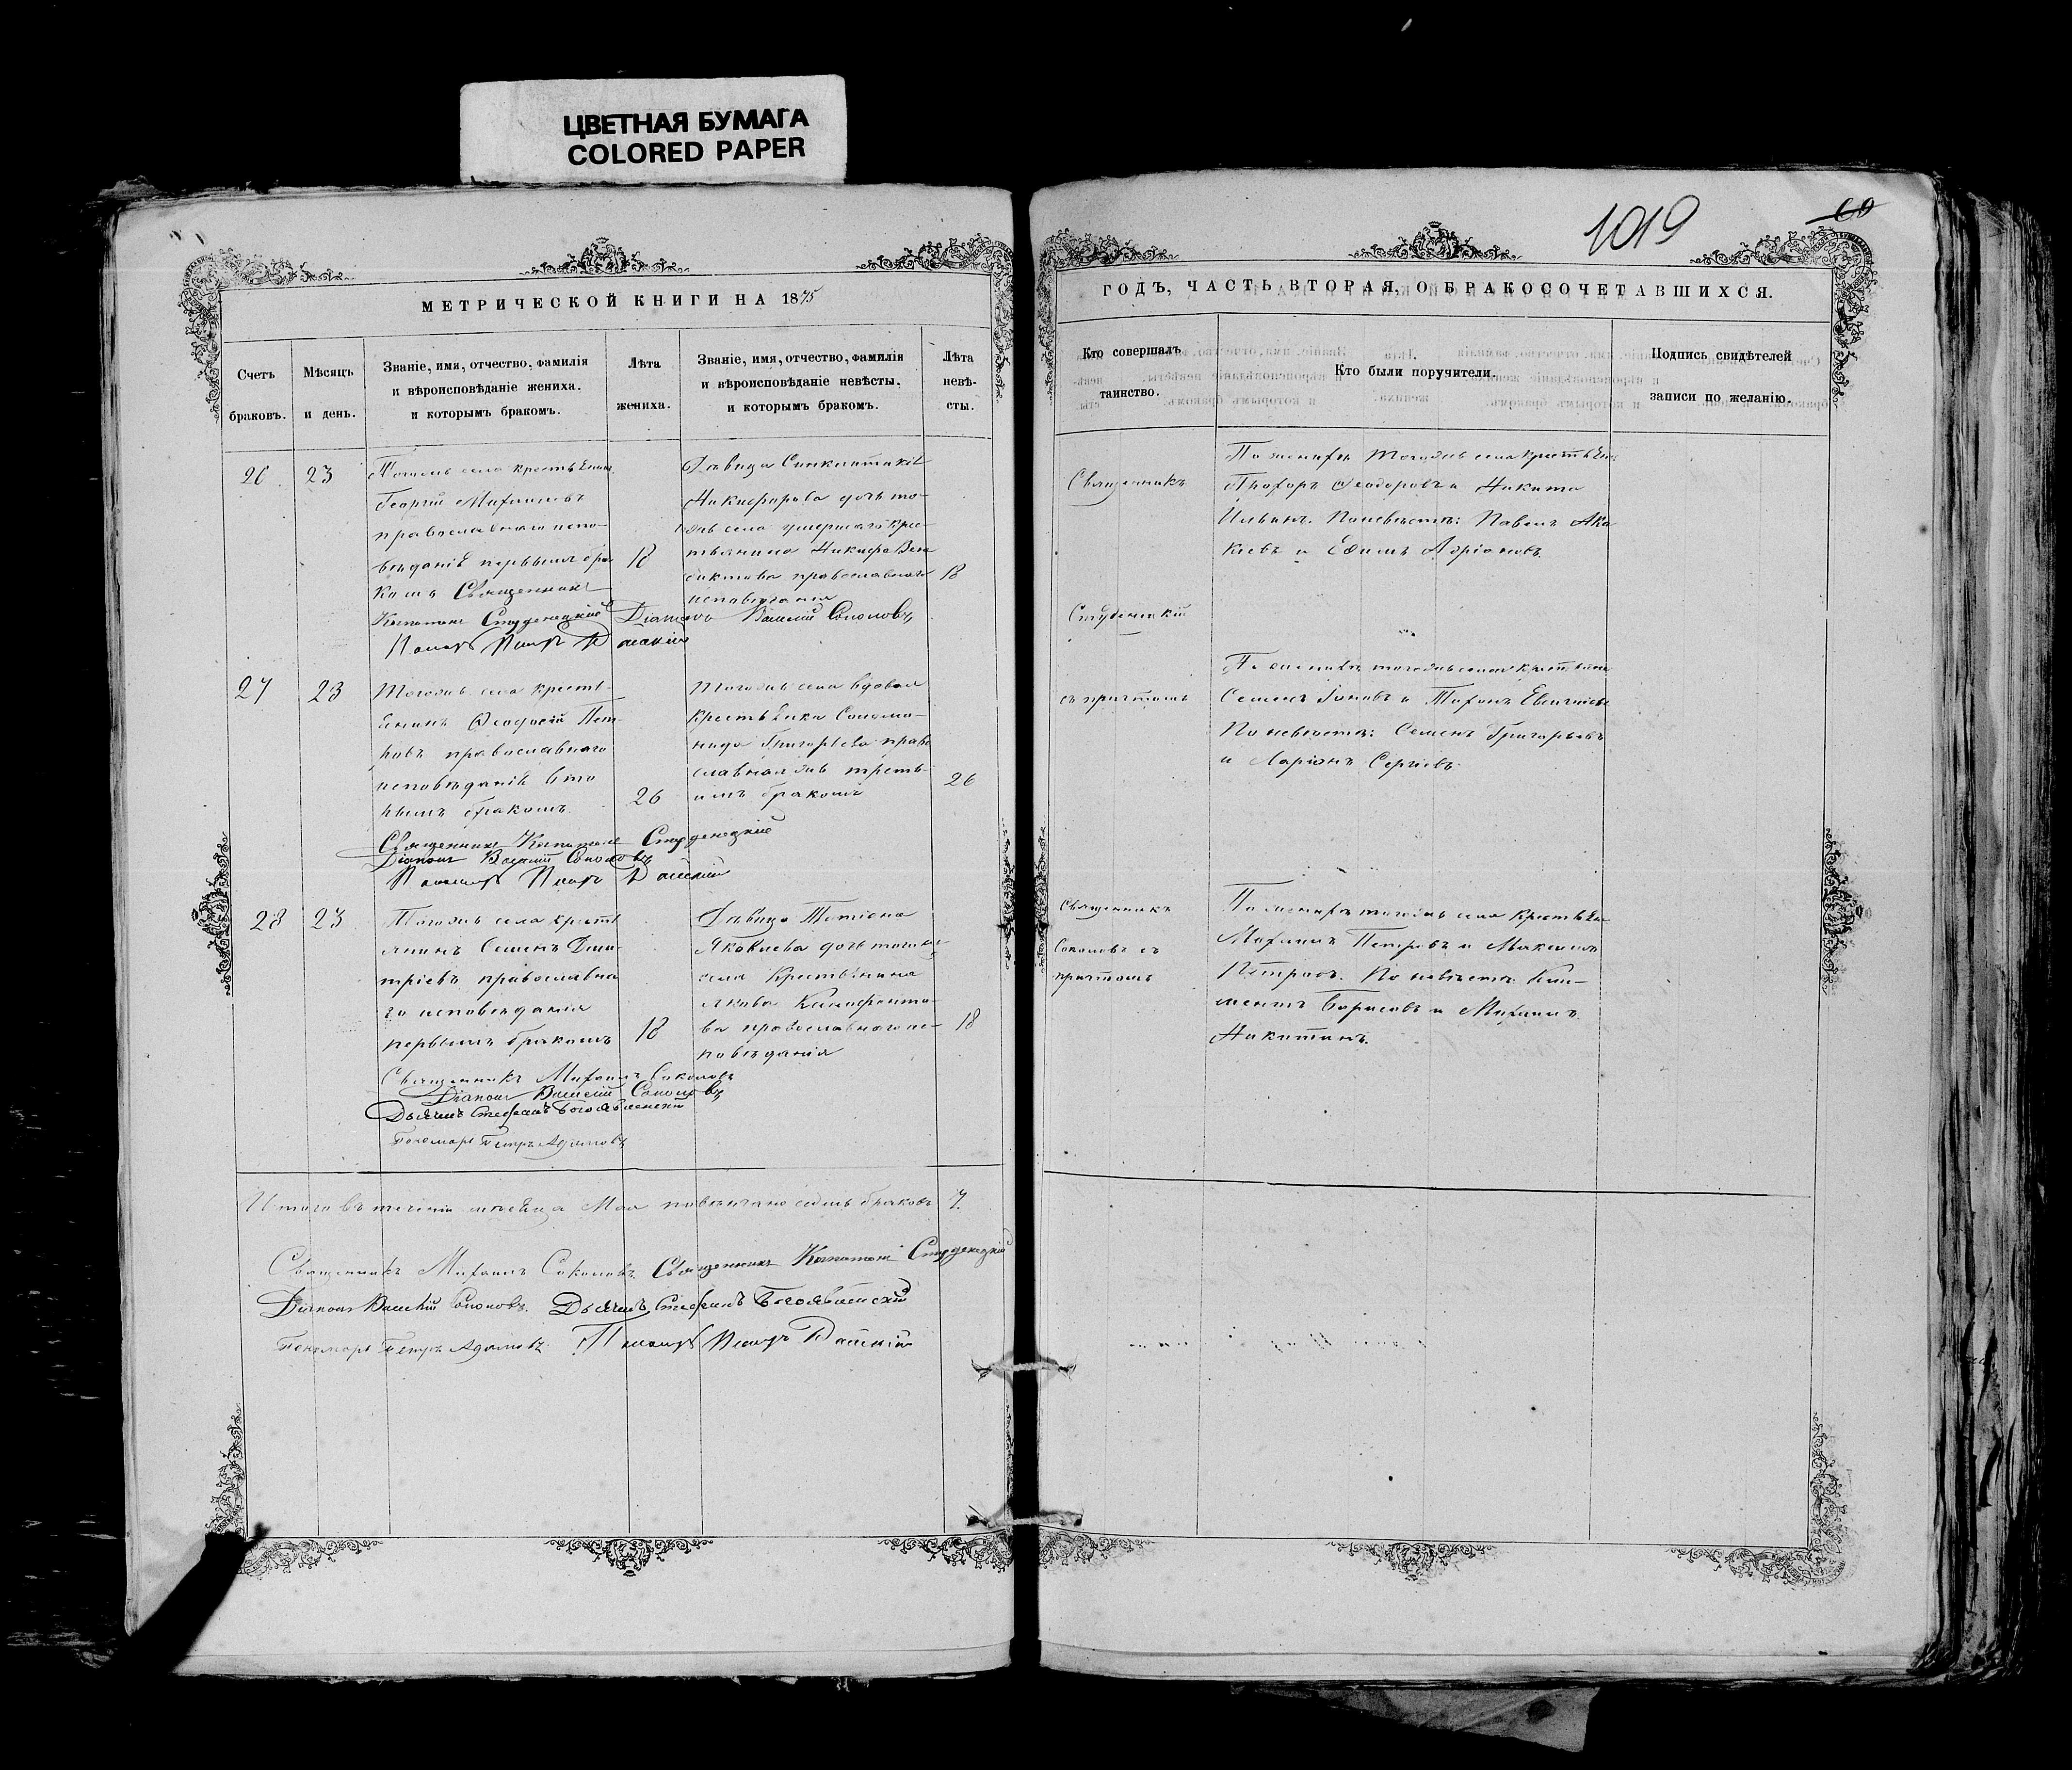 ЦВЕТНАЯ БУМАГА
COLORED PAPER
1019
60
МЕТРИЧЕСКОЙ КНИГИ НА 1875
Счетъ браковъ.
Мѣсяцъ и день.
Званіе, имя, отчество, фамилія
и вѣроисповѣданіе жениха.
и которымъ бракомъ.
Лѣта жениха.
Званіе, имя, отчество, фамилія
и вѣроисповѣданіе невѣсты.
и которымъ бракомъ.
Лѣта невѣ-
сты.
26
23
села крестьянинъ
Георгій Михаиловъ
православнаго испо-
вѣданія первымъ бра
комъ Священникъ
Капитонъ Студенецкій Діаконъ Василій Соколовъ
Петръ
18
Дѣвица Синклитикія
Никифорова дочь то-
гожъ села умершаго крес-
тьянина Никифора
православнаго
исповѣданія
18
27
23
Тогожъ села кресть-
янинъ Ѳеодосій Пет-
ровъ православнаго
исповѣданія вто
рымъ бракомъ
26
Тогожъ села вдовая
крестьянка Соломо-
нида Григорьева право
славная третьимъ бракомъ
26
Священникъ Капитонъ Студенецкій
Діаконъ Василій Соколовъ
Петръ
28
23
Тогожъ села кресть
янинъ Семенъ Дми-
тріевъ православна
го исповѣданія
первымъ бракомъ
18
Дѣвица Татіана
Яковлева дочь тогожъ
села Крестьянина
Якова
православнаго ис-
повѣданія
18
Священникъ Михаилъ Соколовъ
Діаконъ Василій Соколовъ
Дьячекъ Стефанъ Богоявленскій
Пономарь Петръ Адамовъ
Итого въ теченіи мѣсяца Мая повѣнчано седмь браковъ 7.
Священникъ Михаилъ Соколовъ Священникъ Капитонъ Студенецкій
Діаконъ Василій Соколовъ. Дьячекъ Стефанъ Богоявленскій
Пономарь Петръ Адамовъ. Петръ
ГОДЪ, ЧАСТЬ ВТОРАЯ, О БРАКОСОЧЕТАВШИХСЯ.
Кто совершалъ
таинство.
Кто были поручители.
Подпись свидѣтелей
записи по желанію.
Священникъ
Студенецкій
съ причтомъ
По женихѣ тогожъ села крестьяне
Прохоръ Ѳеодоровъ и Никита
Ильинъ. По невѣстѣ: Павелъ Ака
кіевъ и Ефимъ Адріановъ
По женихѣ тогожъ села крестьяне
Семенъ и Тихонъ
По невѣстѣ: Семенъ Григорьевъ
и Ларіонъ Сергіевъ
Священникъ
Соколовъ съ
причтомъ
По женихѣ тогожъ села крестьяне
Михаилъ Петровъ и Максимъ
Петровъ. По невѣстѣ: Кли-
ментъ Борисовъ и Михаилъ
Никитинъ.